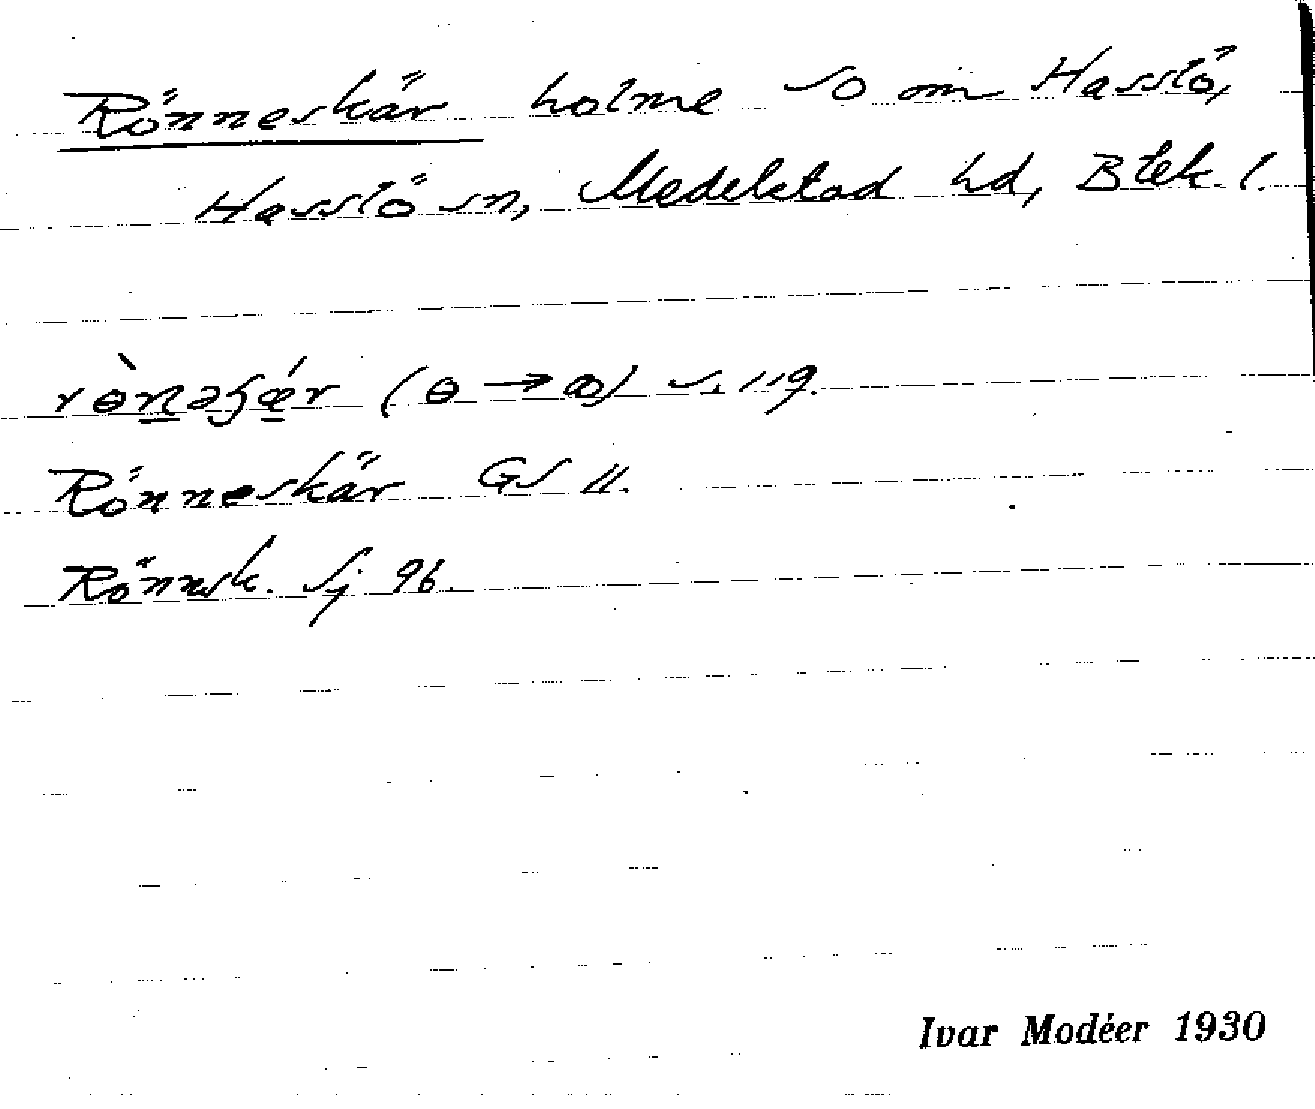 Rönneskär holme SO om Hasslö,
Hasslö sn, Medelstad hd, Blek. l.
(ɵ → ꝏ) s. 119.
Rönneskär GS II.
Rönnesk. Sj 96.
Ivar Modéer 1930